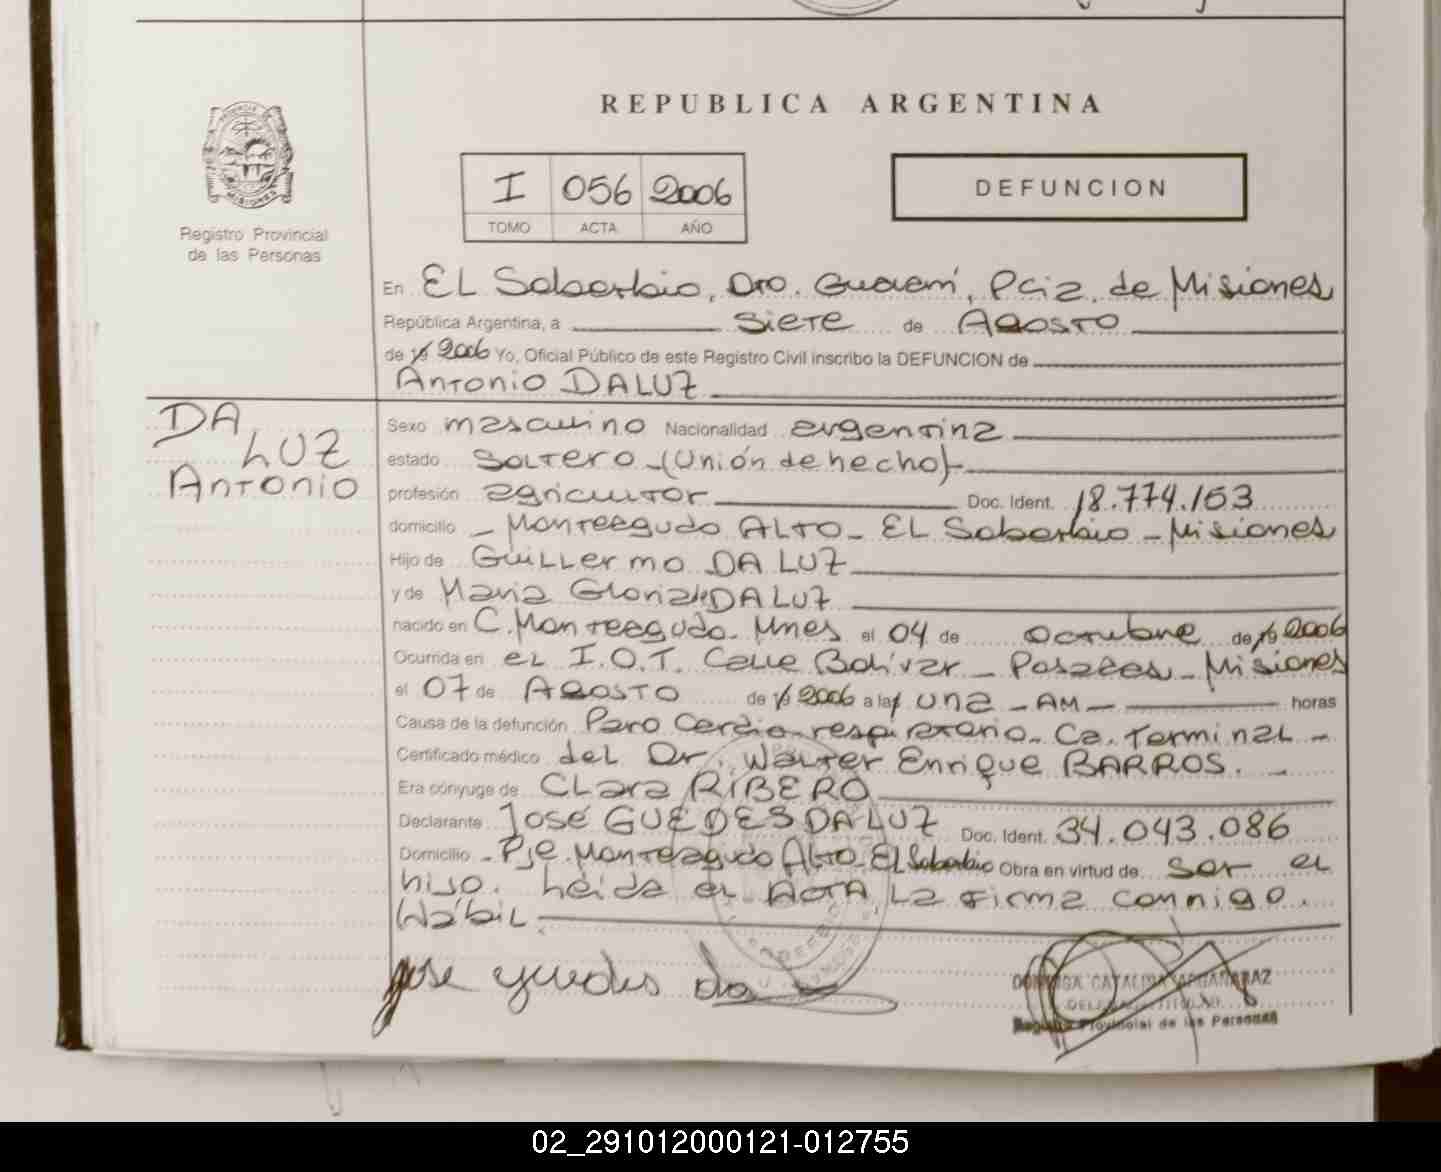 REPUBLICA ARGENTINA
I 056 2006
TOMO ACTA AÑO
DEFUNCION
Registro Provincial
de las Personas
En EL Soberbio, Dto. Guaraní, Pcia. de Misiones
República Argentina, a siete de Agosto
de 19 2006 Yo, Oficial Público de este Registro Civil inscribo la DEFUNCION de
Antonio DA LUZ
DA
LUZ
Antonio
Sexo masculino Nacionalidad argentina
estado soltero (Unión de hecho)
profesión agricultor Doc. Ident. 18.774.153
domicilio - Monteagudo ALTO - EL Soberbio - Misiones
Hijo de Guillermo DA LUZ
y de Maria Gloria DA LUZ
nacido en C. Monteagudo. Mnes el 04 de octubre de 19 2006
Ocurrida en el I.O.T. Calle Bolívar - Posadas - Misiones
el 07 de Agosto de 19 2006 a las una - AM - horas
Causa de la defunción Paro Cardio-respiratorio. Ca. Terminal -
Certificado médico del Dr. Walter Enrique BARROS. -
Era cónyuge de Clara RIBERO
Declarante José GUEDES DA LUZ Doc. Ident. 34.043.086
Domicilio - Pje. Monteagudo Alto EL Soberbio Obra en virtud de ser el
hijo. Leida el ACTA, la firma conmigo.
Hábil.
jose guedes da
Registro Provincial de las Personas
02_291012000121-012755